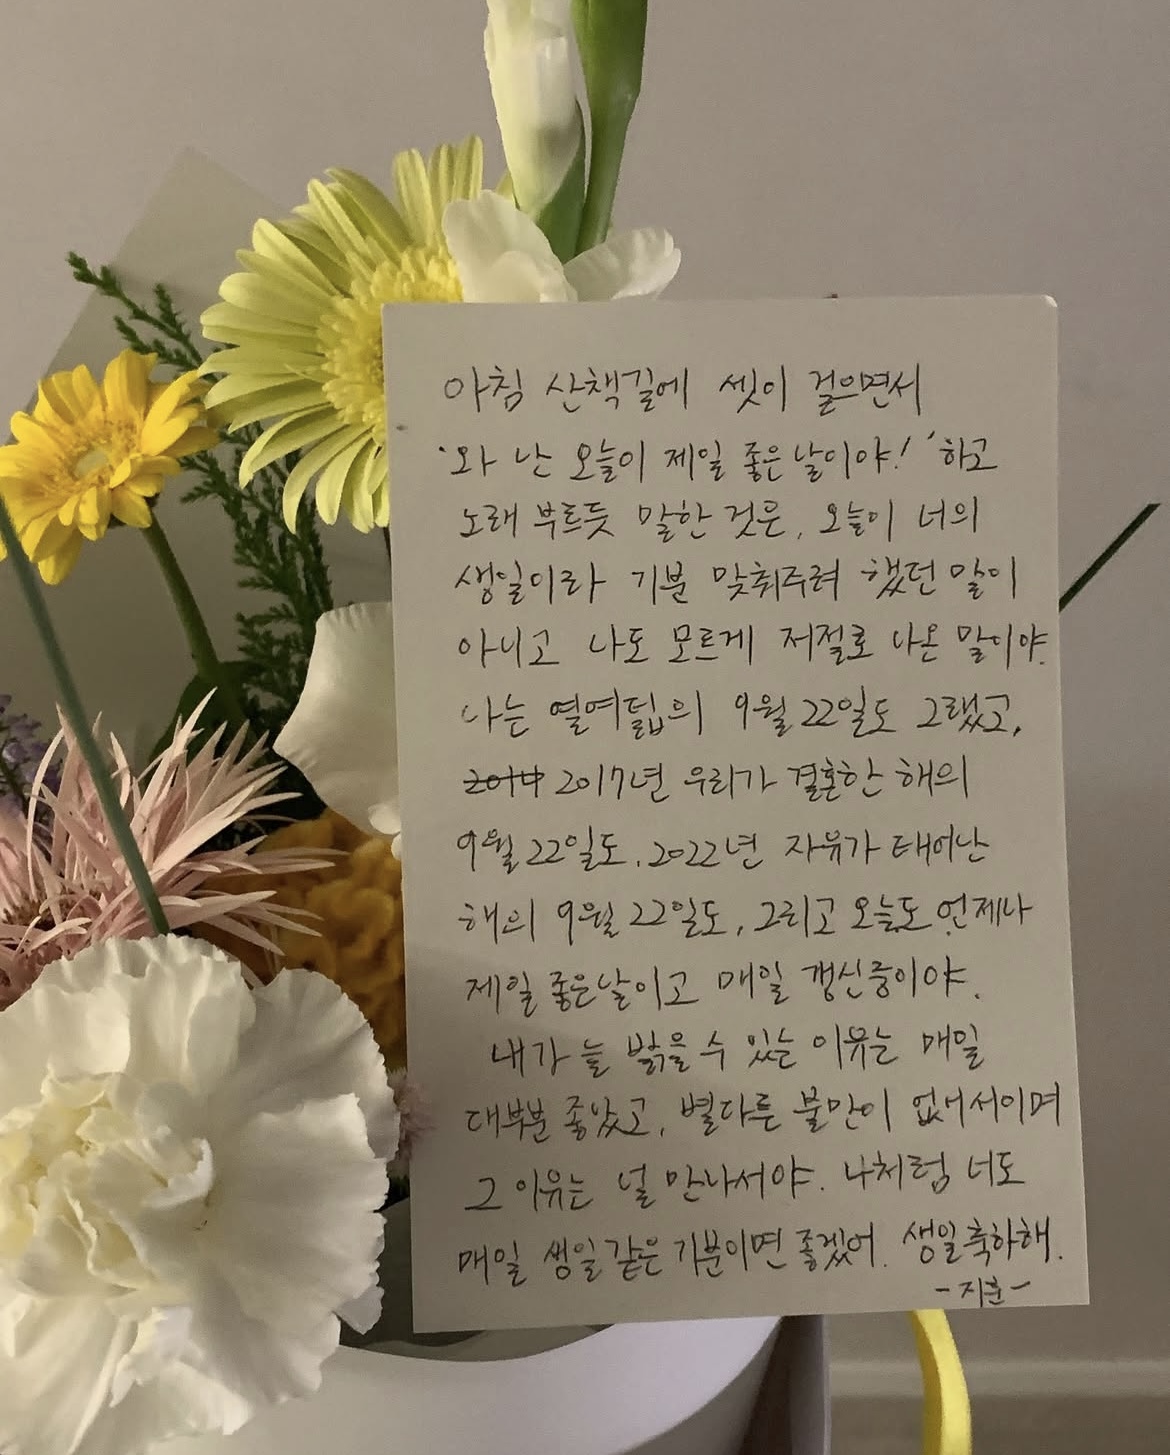 아침 산책길에 셋이 걸으면서
'와 난 오늘이 제일 좋은날이야!' 하고
노래 부르듯 말한 것은, 오늘이 너의
생일이라 기분 맞춰주려 했던 말이
아니고 나도 모르게 저절로 나온 말이야.
나는 열여덟의 9월 22일도 그랬고,
2014 2017년 우리가 결혼한 해의
9월 22일도, 2022년 자유가 태어난
해의 9월 22일도, 그리고 오늘도 언제나
제일 좋은날이고 매일 갱신중이야.
내가 늘 밝을 수 있는 이유는 매일
대부분 좋았고, 별다른 불만이 없어서이며
그 이유는 널 만나서야. 나처럼 너도
매일 생일같은 기분이면 좋겠어. 생일축하해.